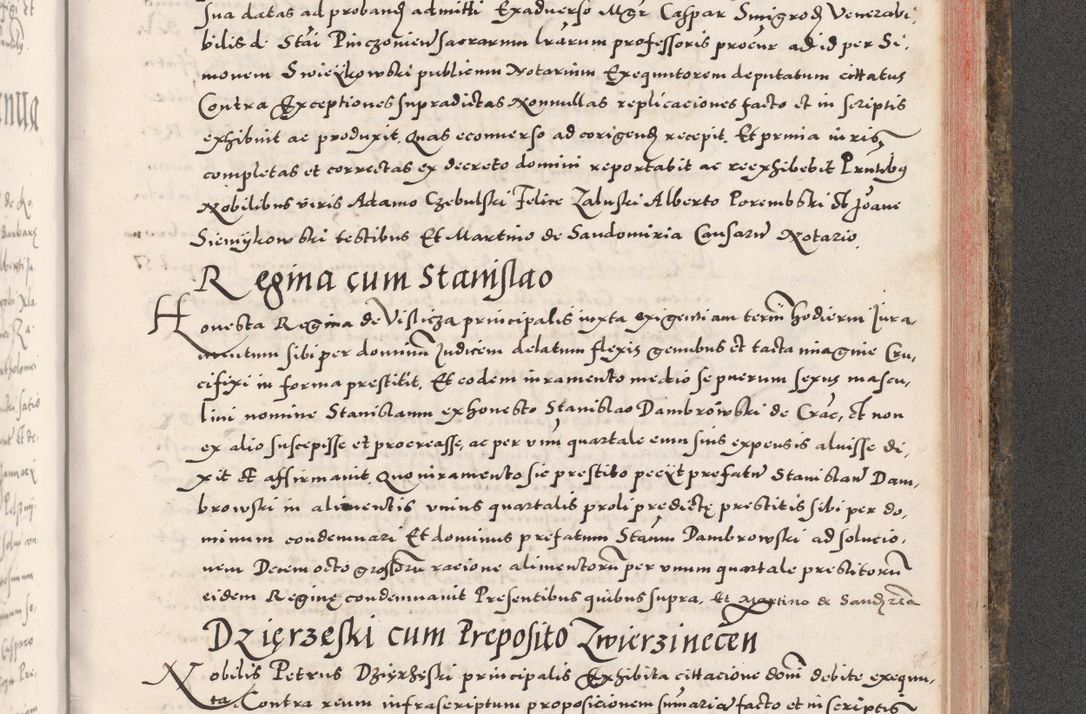 sua datas ad proband admitti Exaduerso Mgr Caspar Smigrod Venerabi,
bilis d. Stăi Pinczonien sacrarum lrarum professoris procur ad id per Si,
monem Swieykowski publicum Notarium Exequutorem deputatum cittatus
Contra Exceptiones supradictas Nonnullas replicaciones facto et in scriptis
exhibuit ac produxit, quas econuerso ad corigend recepit. Et prmia in ris
completas et correctas ex decreto domini reportabit ac reexhibebit Prntibus
Nobilibus viris Adamo Czebulski Felice Zaluski Alberto Porembski Et Joane
Siemykowski testibus Et Martino de Sandomiria Causarum Notario.
Regina cum Stanislao
Honesta Regina de Vislicza principalis iuxta exigentiam termini hodierni Jura,
mentum sibi per dominum Judicem delatum flexis genubus et tacta imagine Cru,
cifixi in forma prestitit, Et eodem iuramento medio se puerum sexus mascu,
lini nomine Stanislaum ex honesto Stanislao Dambrowski de Crac, Et non
ex alio suscepisse et procreasse, ac per vnu quartale eum suis expensis aluisse di,
xit Et affirmauit. Quo iuramento sic prestito peciit prefatum Stanislaum Dam,
browski in alimentis vnius quartalis proli predictę prestitis sibi per do,
minum condemnari Et dominus prefatum Stanum Dambrowski ad solucio,
nem Decem octo grossorum racione alimentorum per vnum quartale prestitorum
eidem Reginę condemnauit Presentibus quibus supra, Et Martino de Sandzria
Dzięrzeski cum Preposito Zwierzinecen
Nobilis Petrus Dziyrżeski principalis Exhibita cittacione domi debite exequu,
ta, Contra reum infrascriptum proposicionem sumaria facto et in scriptis